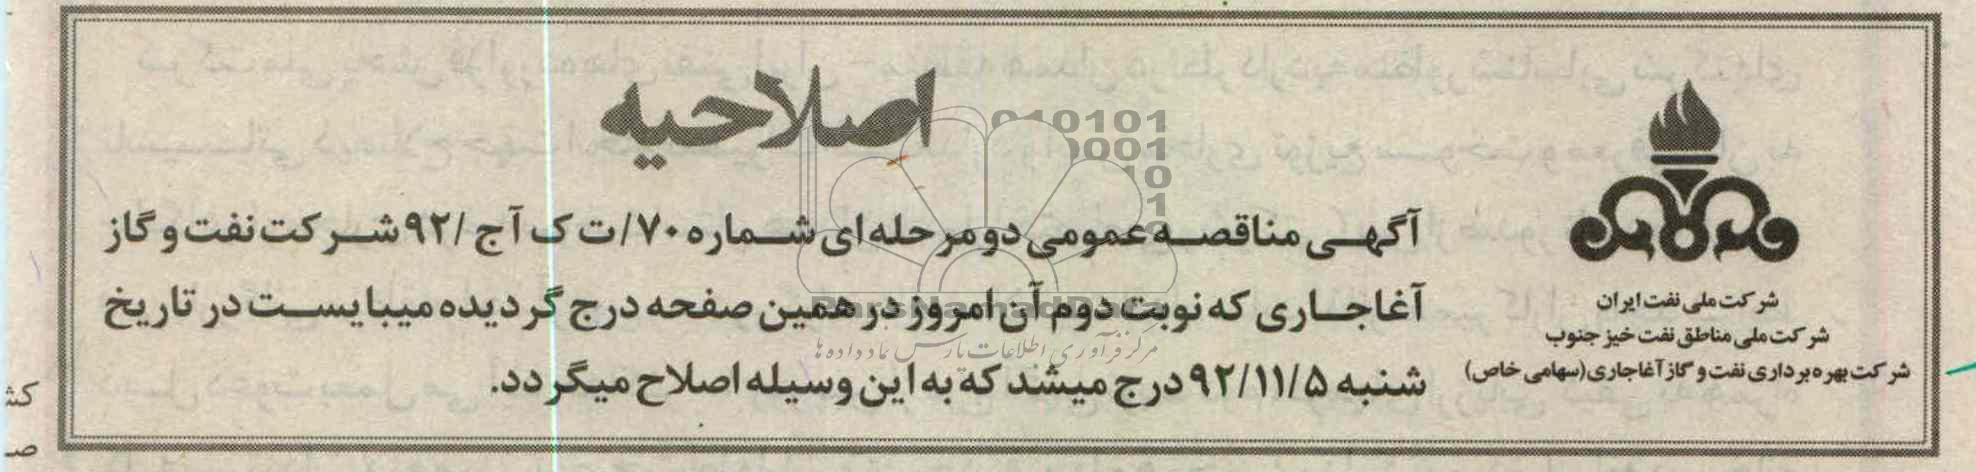 اصلاحیه
آگهی مناقصه عمومی دو مرحله ای شماره ۷۰/ت ک آج /۹۲ شرکت نفت و گاز
آغاجاری که نوبت دوم آن امروز در همین صفحه درج گردیده میبایست در تاریخ
شنبه ۹۲/۱۱/۵ درج میشد که به این وسیله اصلاح میگردد.
شرکت ملی نفت ایران
شرکت ملی مناطق نفت خیز جنوب
شرکت بهره برداری نفت و گاز آغاجاری (سهامی خاص)
مرکز فرآوری اطلاعات پارس نماد داده ها